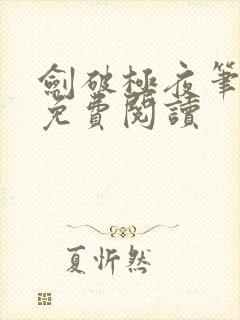 劍破極夜筆
免費閱讀
夏忻然